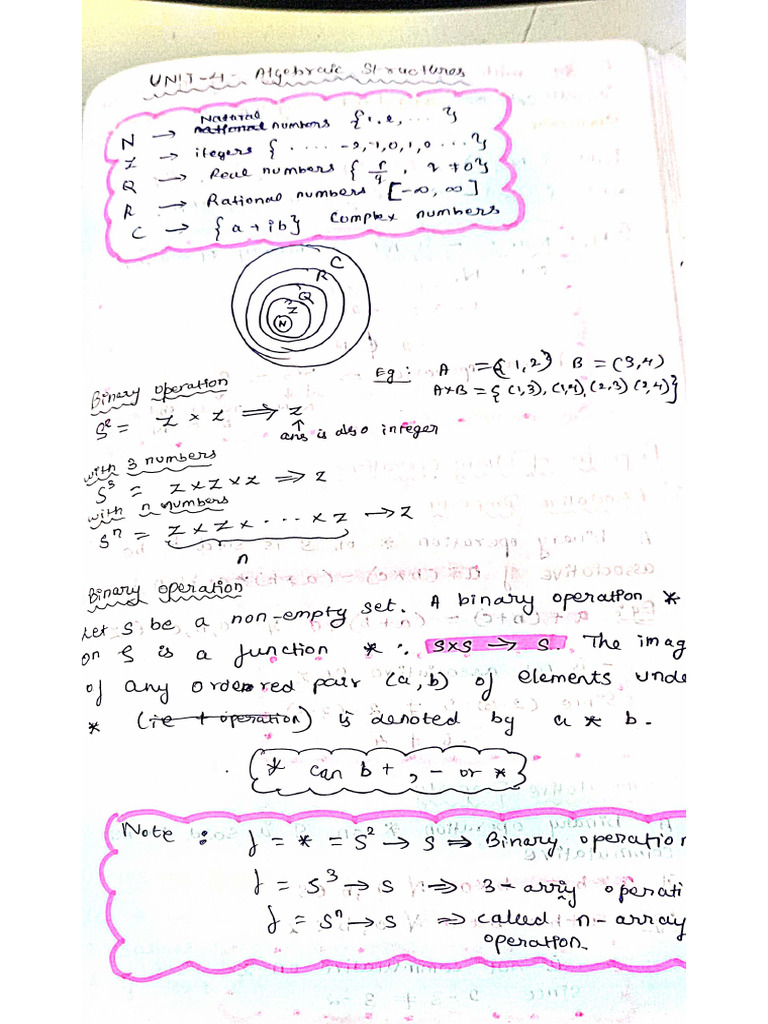 UNIT-4- Algebraic Structures
Natural
N → national numbers {1, 2, ... }
Z → itegers { .... -2, -1, 0, 1, 0 ... }
Q → Real numbers { r/q , q ≠ 0}
R → Rational numbers [-∞, ∞]
C → {a + ib} Complex numbers
C
R
Q
Z
N
Eg: A = {1, 2} B = (3, 4)
A×B = {(1,3), (1,4), (2,3) (2,4)}
Binary operation
S² = Z × Z ⇒ Z
↑
ans is also integer
with 3 numbers
S³ = Z×Z×Z ⇒ Z
with n numbers
Sⁿ = Z×Z× ... ×Z → Z
n
Binary operation
Let S be a non-empty set. A binary operation *
on S is a function * : S×S → S. The imag
of any ordered pair (a, b) of elements unde
* (ie + operation) is denoted by a * b.
* can b + , - or *
Note : f = * = S² → S ⇒ Binary operation
f = S³ → S ⇒ 3-arriy operati
f = Sⁿ → S ⇒ called n-array
operation.